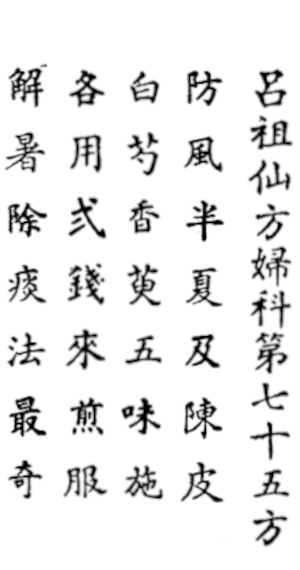 呂祖仙方婦科第七十五方
防風半夏及陳皮
白芍香萸五味施
各用弍錢來煎服
解暑除痰法最奇